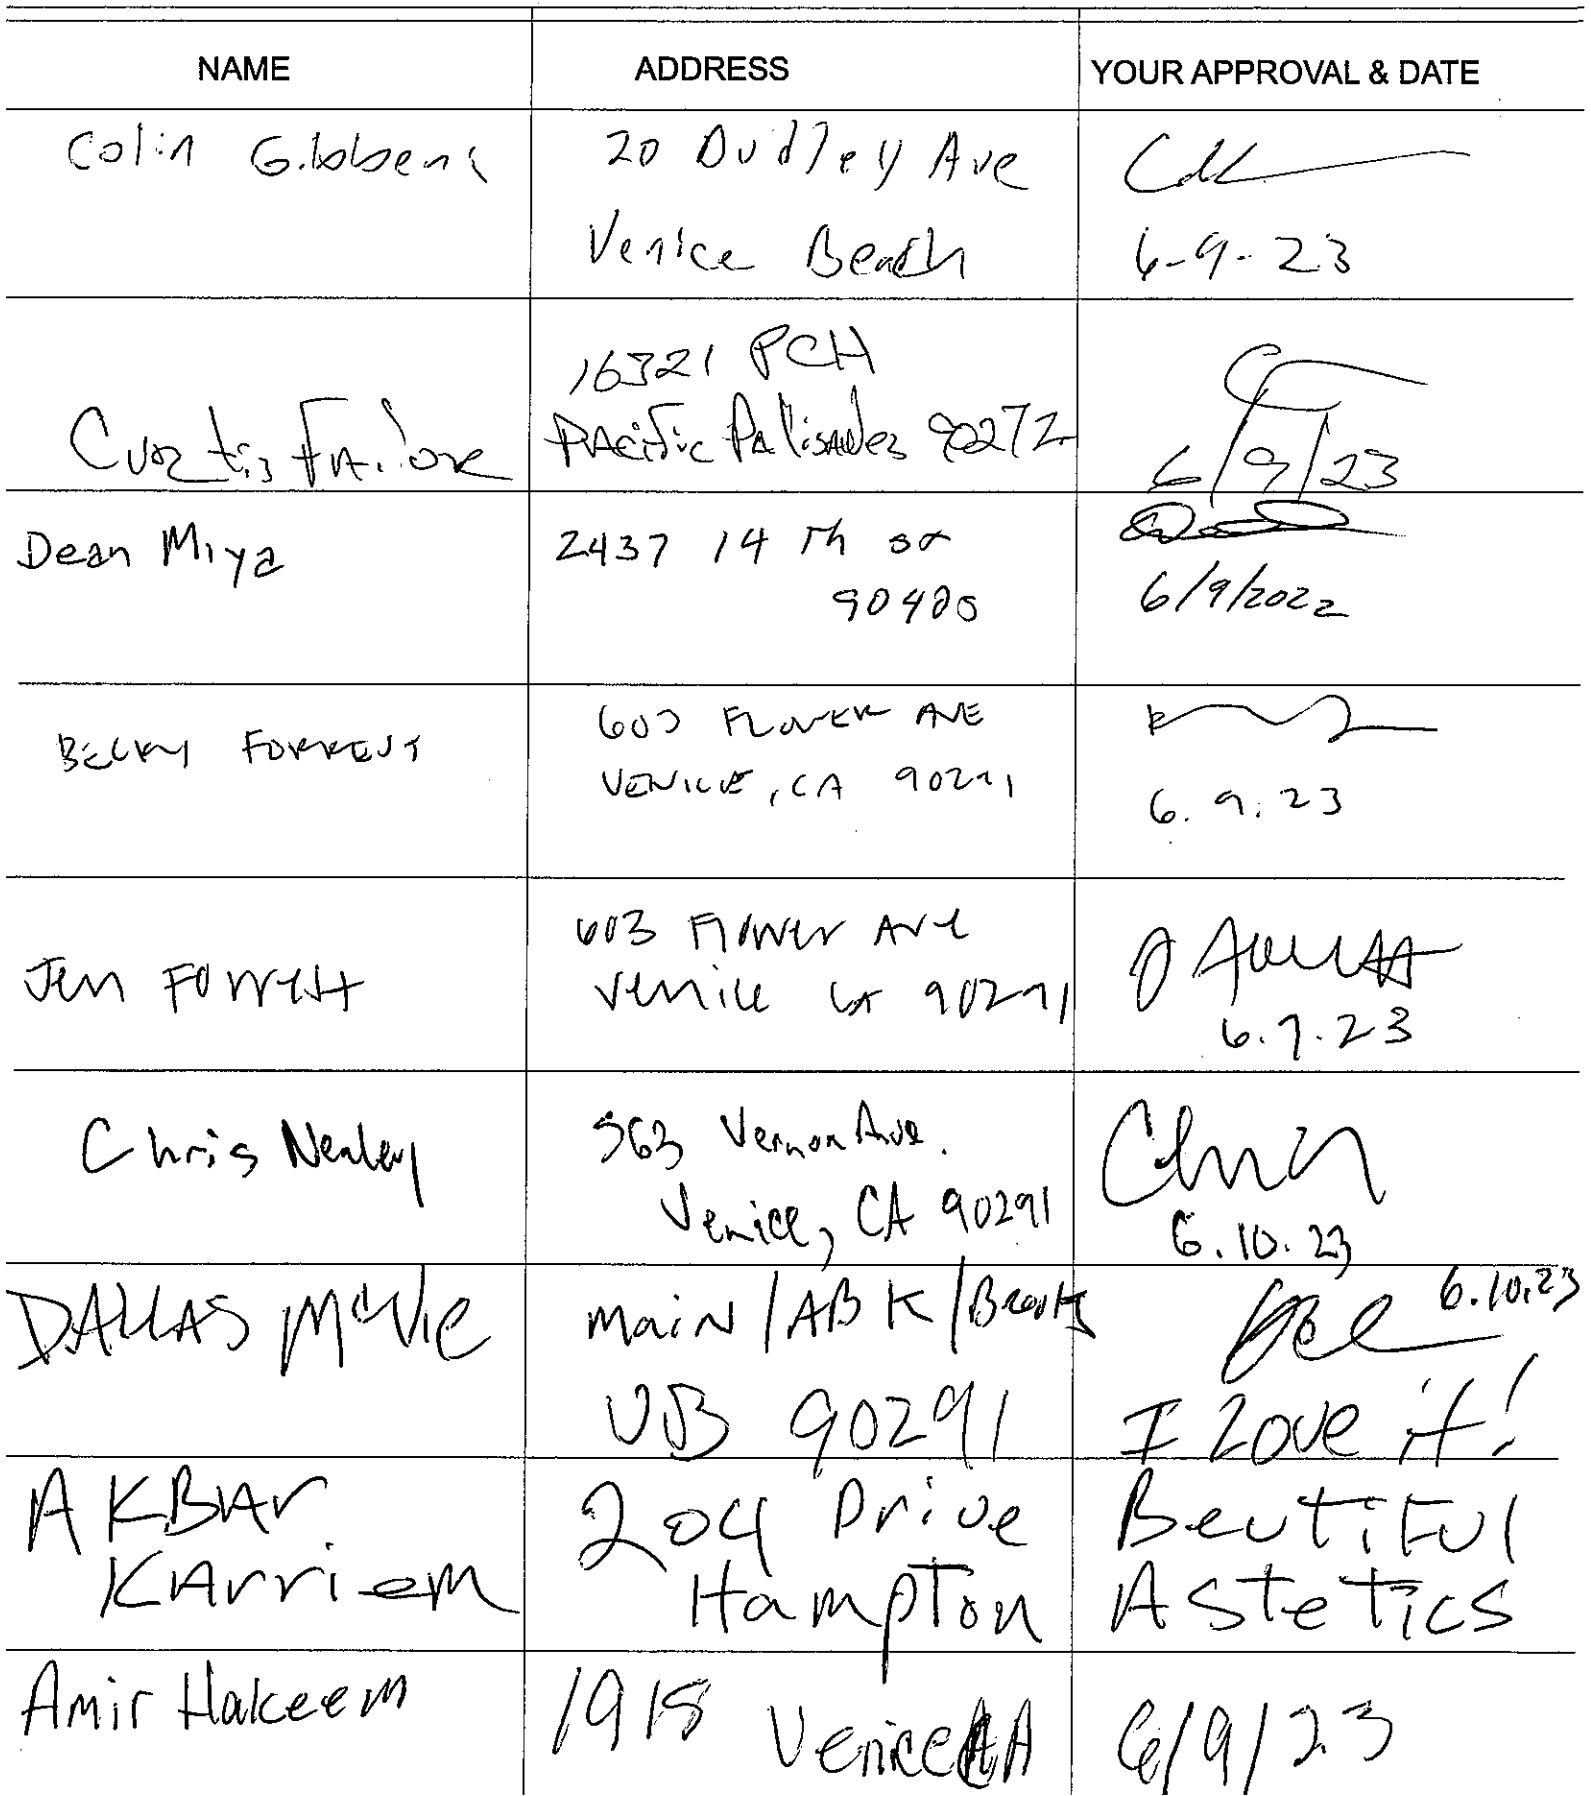 NAME ADDRESS YOUR APPROVAL & DATE
Colin Gibbens 20 Dudley Ave
Venice Beach 6-9-23
16321 PCH
Curtis Pacific Pallisades 90272 6/9/23
Dean Miya 2437 14 Th St
90405 6/9/2022
BECKY FORREST 603 FLOWER AVE
VENICE, CA 90291 6.9.23
603 Flower Ave
Jen Forrest Venice CA 90291
6.9.23
Chris Nealey 563 Vernon Ave.
Venice, CA 90291 6.10.23
DALLAS McVie Main/ABK/Brooks 6.10.23
VB 90291 I Love it!
AKBAr 204 Drive BeutiFul
KArriem Hampton Astetics
Amir Hakeem 1918 Venice CA 6/9/23